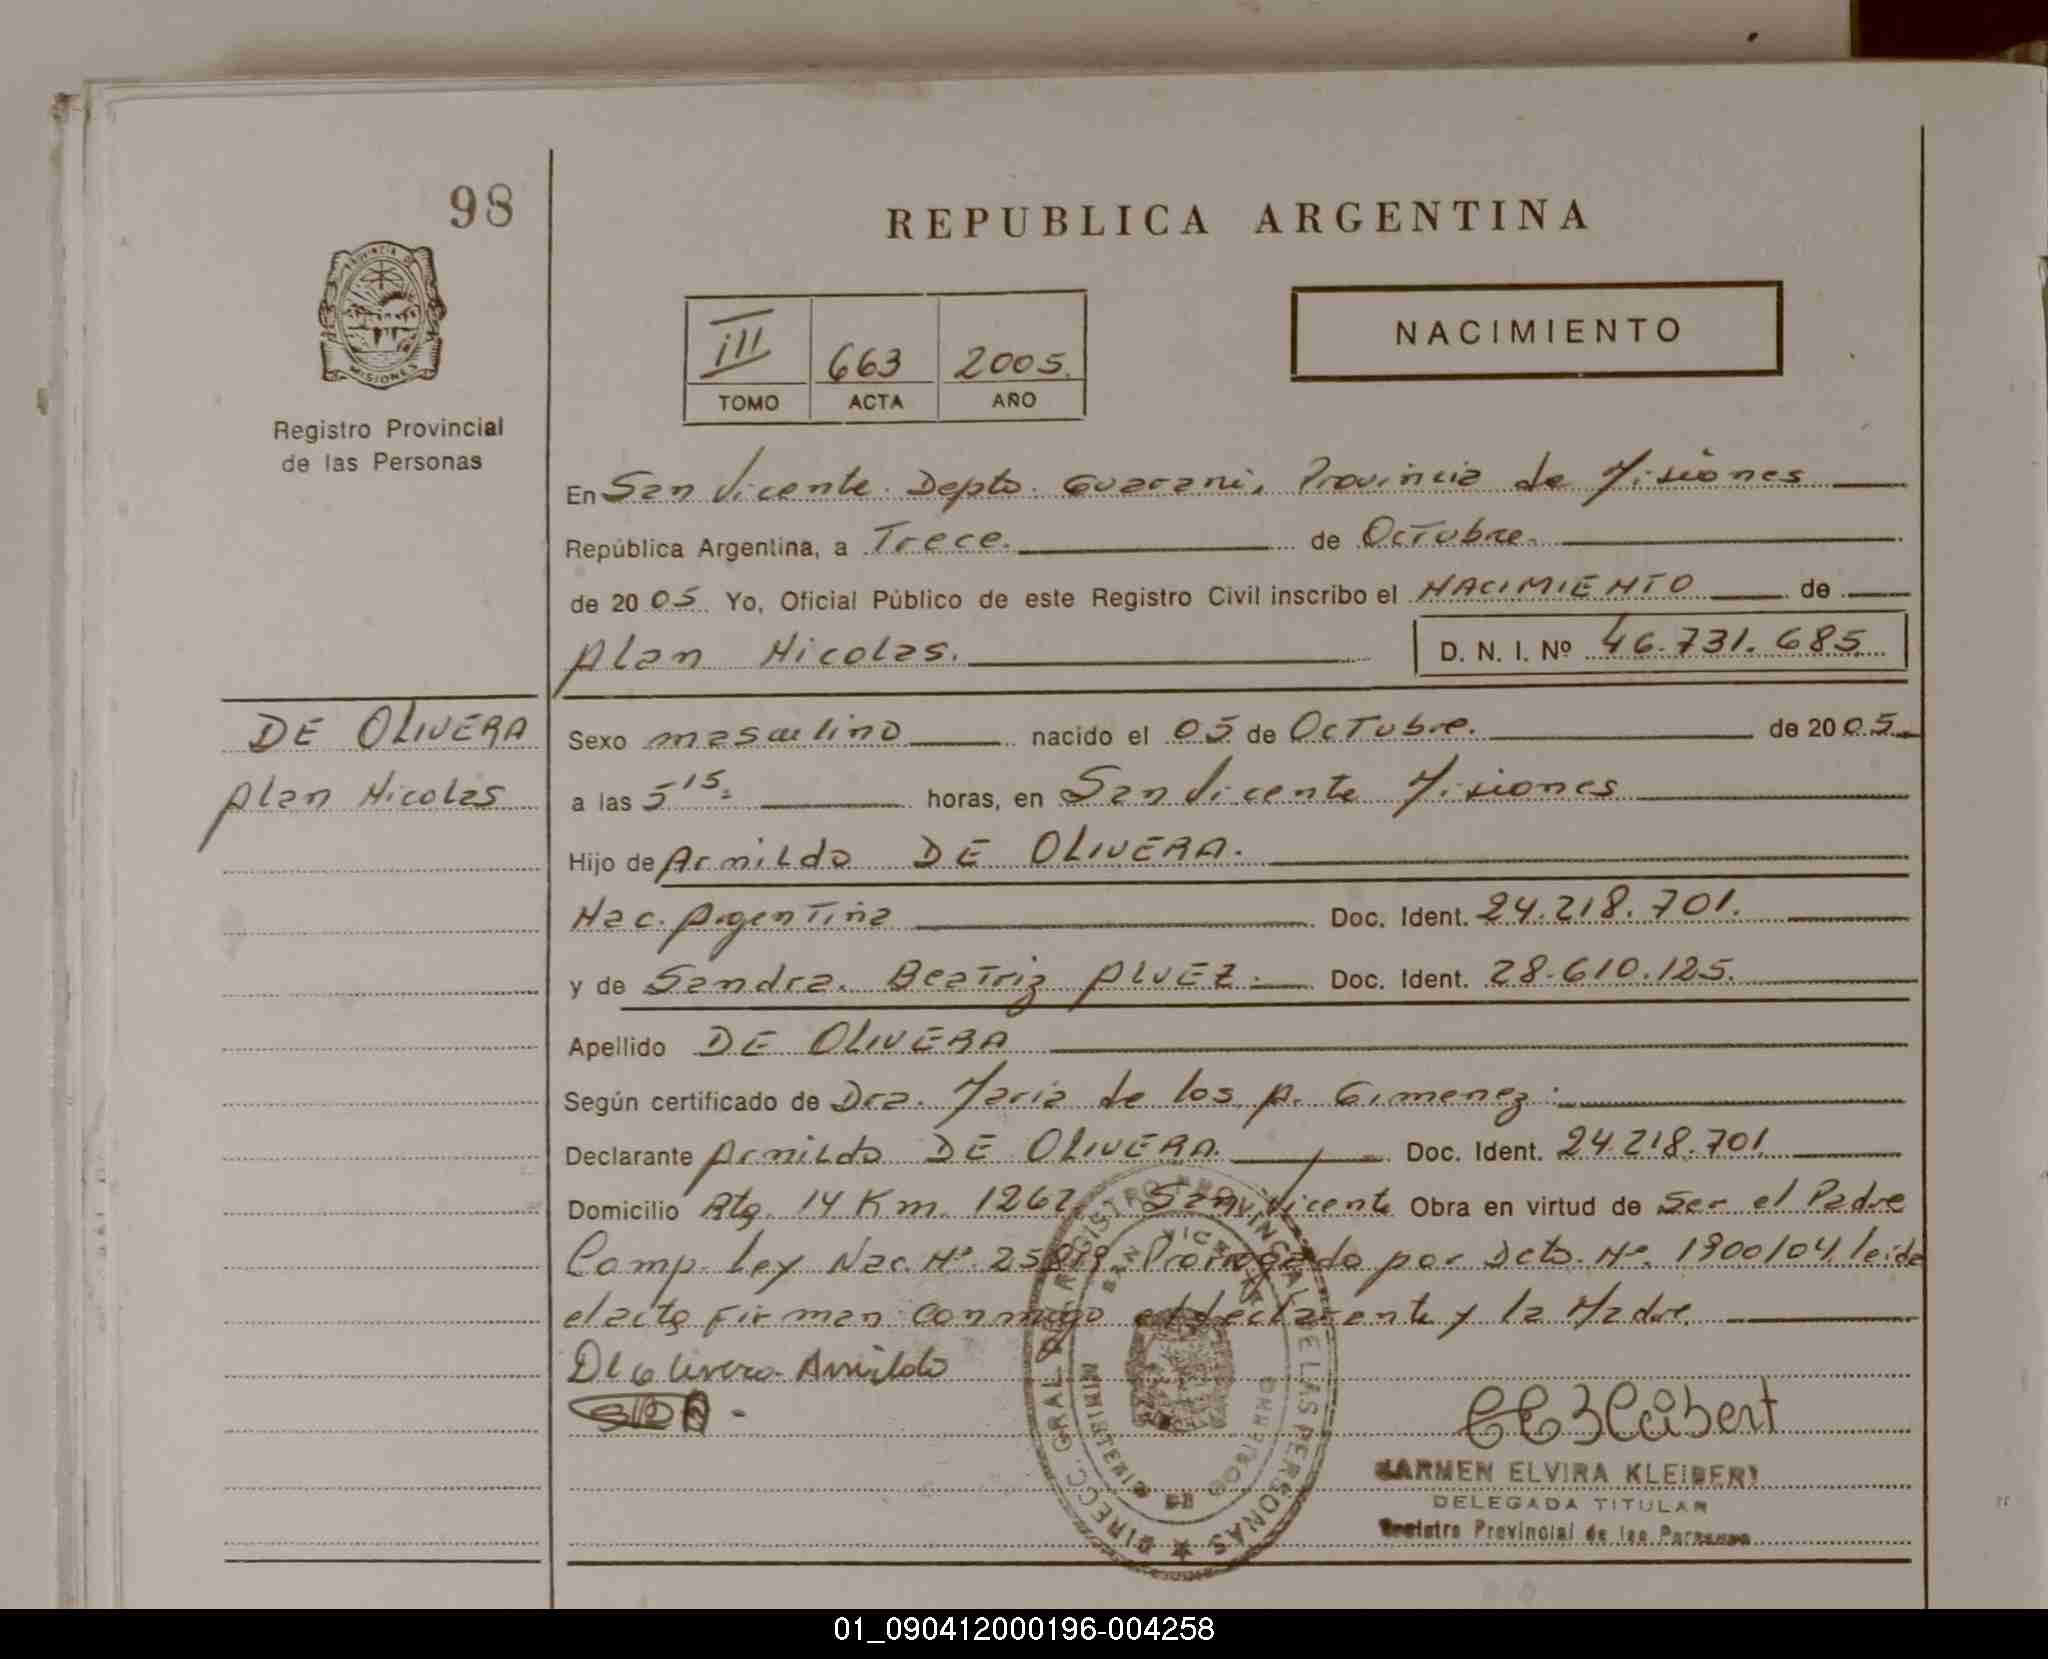 98
REPUBLICA ARGENTINA
PROVINCIA DE
MISIONES
Registro Provincial
de las Personas
III 663 2005.
TOMO ACTA AÑO
NACIMIENTO
En San Vicente. Depto. Guarani, Provincia de Misiones
República Argentina, a Trece. de Octubre.
de 2005 Yo, Oficial Público de este Registro Civil inscribo el NACIMIENTO de
Alan Nicolas. D. N. I. Nº 46.731.685.
DE OLIVERA
Alan Nicolas
Sexo masculino nacido el 05 de Octubre. de 2005.
a las 5 15. horas, en San Vicente Misiones
Hijo de Arnildo DE OLIVERA.
Nac. Argentina Doc. Ident. 24.218.701.
y de Sandra. Beatriz ALVEZ. Doc. Ident. 28.610.125.
Apellido DE OLIVERA
Según certificado de Dra. Maria de los A. Gimenez.
Declarante Arnildo DE OLIVERA. Doc. Ident. 24.218.701.
Domicilio Rta. 14 Km. 1262. San Vicente Obra en virtud de Ser el Padre
Comp. Ley Nac. Nº 25819. Prorrogado por Dcto. Nº. 1900/04. leida
el acta firman conmigo el declarante y la Madre.
De Olivera Arnildo
CEKleibert
CARMEN ELVIRA KLEIBERT
DELEGADA TITULAR
Registro Provincial de las Personas
DIRECC. GRAL DEL REGISTRO PROVINCIAL DE LAS PERSONAS
SAN VICENTE
MINISTERIO DE GOBIERNO
01_090412000196-004258